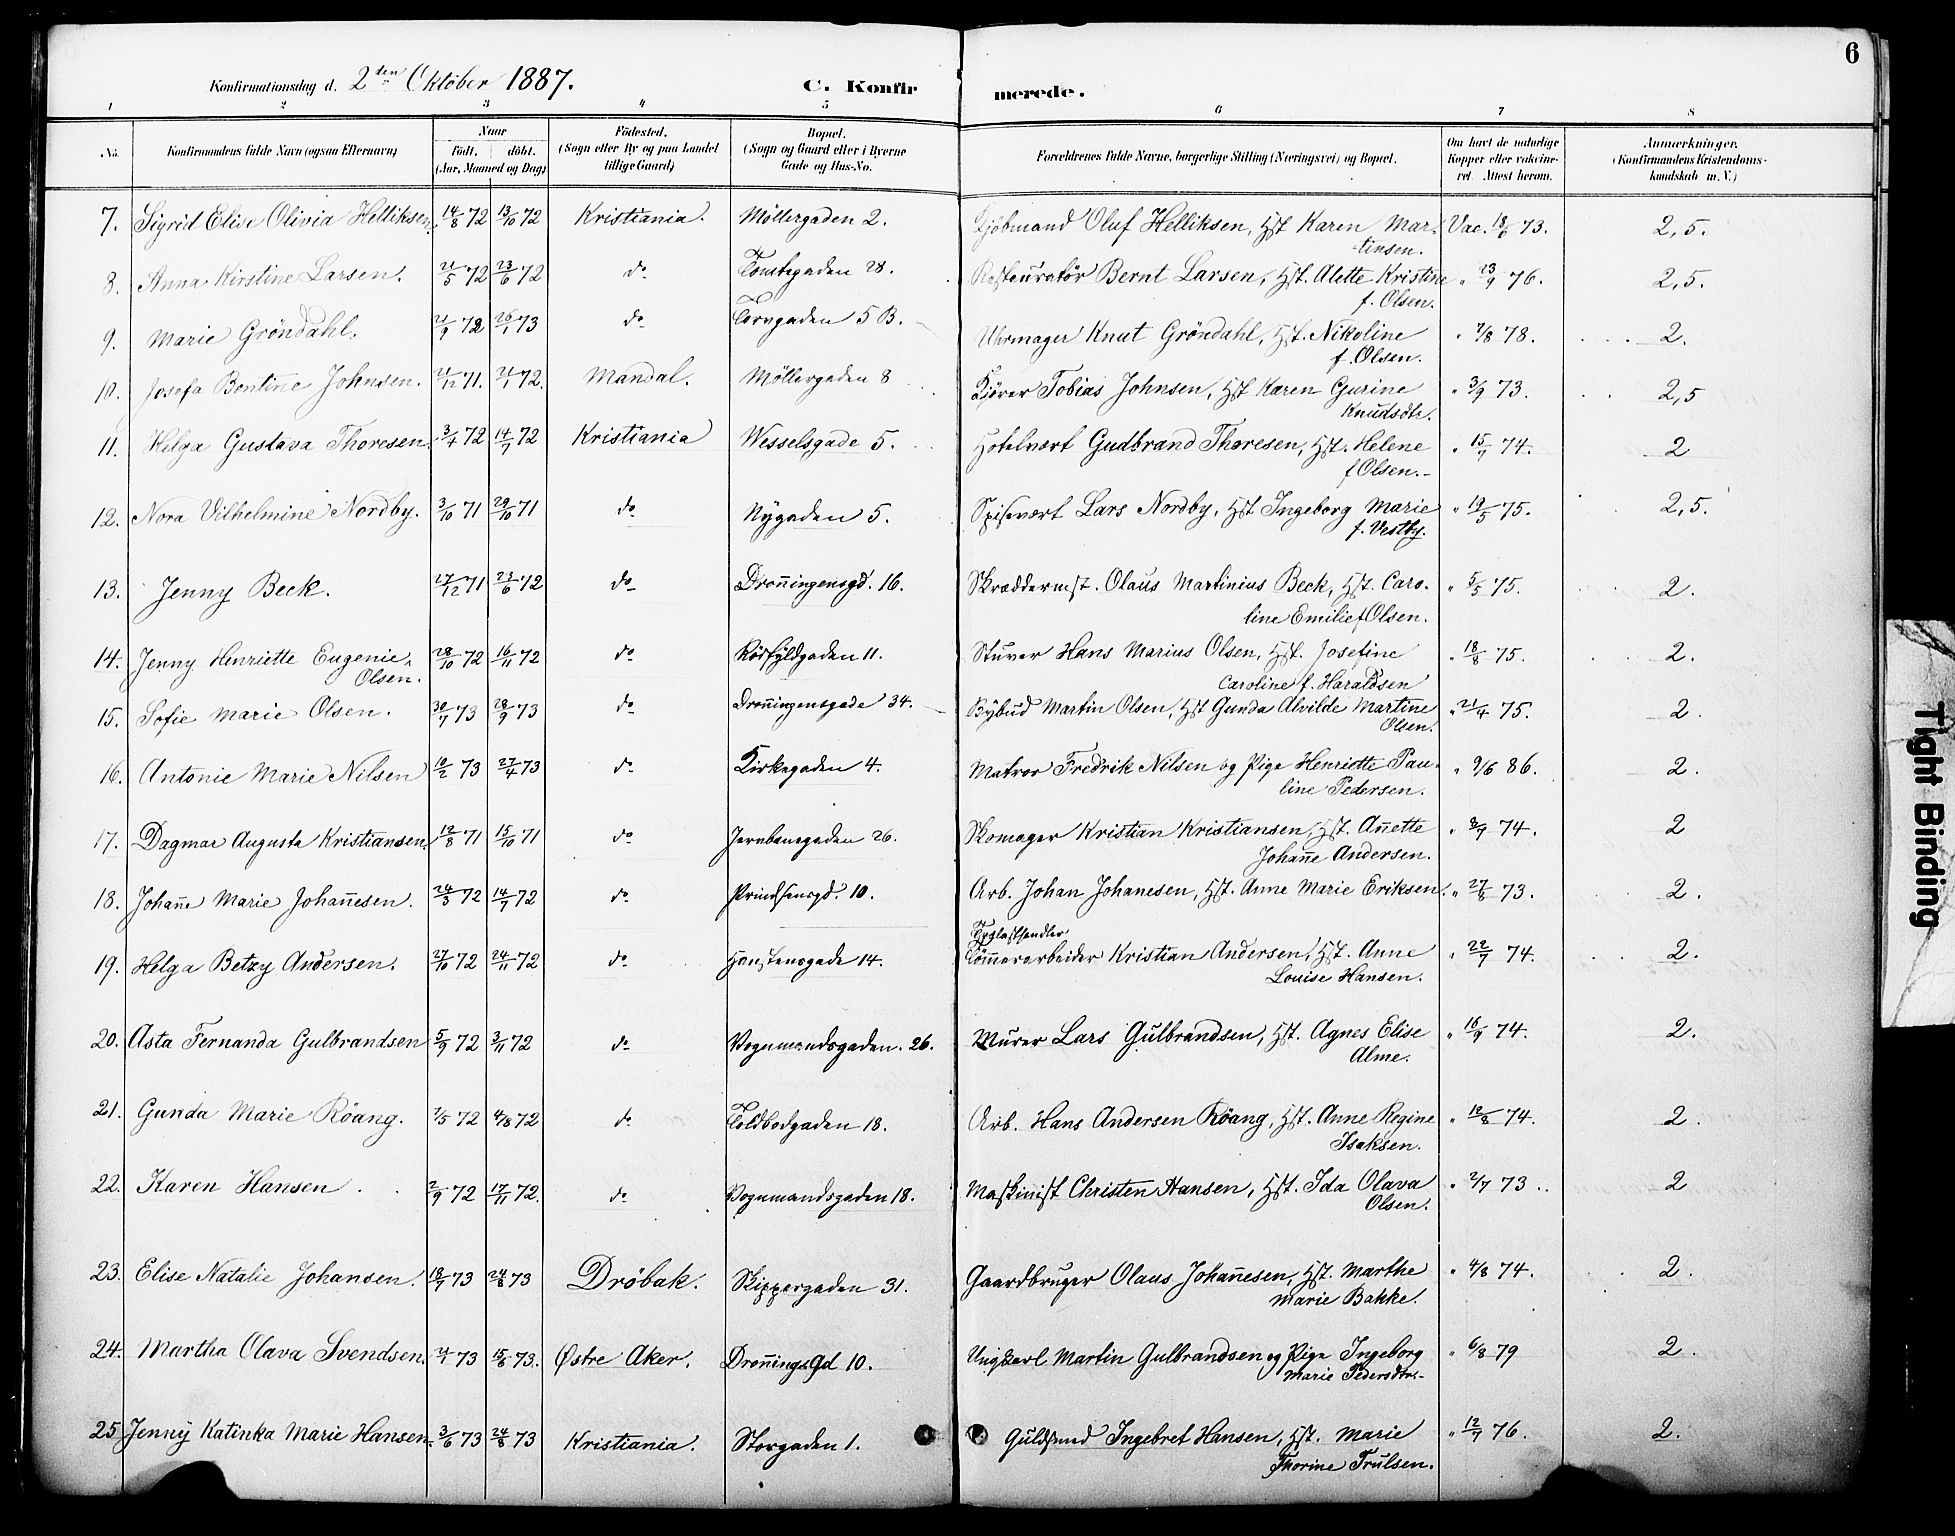 6
Konfirmationsdag d. 2den Oktober 1887. C. Konfirmerede.
1 2 3 4 5 6 7 8
No. Konfirmandens fulde Navn (ogsaa Efternavn) Naar født. døbt. (Aar, Maaned og Dag) Fødested. (Sogn eller By og paa Landet tillige Gaard) Bopæl. (Sogn og Gaard eller i Byerne Gade og Hus-No. Forældrenes fulde Navne, borgerlige Stilling (Næringsvei) og Bopæl. Om havt de naturlige Kopper eller vakcineret. Attest herom. Anmærkninger. (Konfirmandens Kristendomskundskab m. V.)
7. Sigrid Elise Olivia Helliksen. 14/8 72 13/10 72 Kristiania. Møllergaden 2. Kjøbmand Oluf Helliksen, Hst Karen Martinsen. Vac. 18/6 73. 2,5.
8. Anna Kirstine Larsen. 21/5 72 23/6 72 do Tomtegaden 28. Restauratør Bernt Larsen, Hst. Alette Kristine f. Olsen. " 23/9 76. 2,5.
9. Marie Gröndahl. 21/9 72 26/1 73 do Torvgaden 5 B. Uhrmager Knut Gröndahl, Hst. Nikoline f. Olsen. " 7/8 78. 2.
10. Josefa Bentine Johnsen. 21/12 71. 21/1 72. Mandal. Møllergaden 8 Kjører Tobias Johnsen, Hst Karen Gurine Knudsdtr. " 3/9 73. 2,5
11. Helga Gustava Thoresen. 3/4 72 14/7 72 Kristiania Wesselsgade 5. Hotelvært Gudbrand Thoresen, Hst. Helene f Olsen. " 15/7 74. 2
12. Nora Vilhelmine Nordby. 3/10 71 29/10 71 do Nygaden 5. Spisevært Lars Nordby, Hst Ingeborg Marie f. Vestby. " 19/5 75. 2,5.
13. Jenny Beck. 27/12 71 23/6 72 do Dronningensgd. 16. Skræddermst. Olaus Martinius Beck, Hst. Caroline Emilie f Olsen. " 5/5 75. 2.
14. Jenny Henriette Eugenie Olsen. 28/10 72 16/11 72 do Rørfyldgaden 11. Stuver Hans Marius Olsen, Hst. Josefine Caroline f. Haraldsen " 18/8 75. 2.
15. Sofie Marie Olsen. 30/7 73 28/9 73 do Dronningensgade 34. Bybud Martin Olsen, Hst Gunda Alvilde Martine Olsen. " 21/4 75. 2.
16. Antonie Marie Nilsen 10/2 73 27/4 73 do Kirkegaden 4. Matros Fredrik Nilsen og Pige Henriette Pauline Pedersen. " 9/6 86. 2.
17. Dagmar Augusta Kristiansen. 19/8 71 15/10 71 do Jernbanegaden 26. Skomager Kristian Kristiansen, Hst. Anette Johanne Andersen. " 3/9 74. 2
18. Johanne Marie Johannesen. 24/3 72 14/7 72 do Prindsensgd. 10. Arb. Johan Johanesen, Hst. Anne Marie Eriksen. " 27/8 73. 2.
19. Helga Betzy Andersen. 27/10 72 24/11 72 do Haustensgade 14. Tømmerarbeider Kristian Andersen, Hst. Anne Louise Hansen. " 22/7 74. 2.
20. Asta Fernanda Gulbrandsen 5/9 72 3/11 72 do Vognmandsgaden. 26. Murer Lars Gulbrandsen, Hst. Agnes Elise Alme. " 16/9 74. 2.
21. Gunda Marie Röang. 7/5 72 4/8 72 do Toldbodgaden 18. Arb. Hans Andersen Röang, Hst. Anne Regine Isaksen. " 12/8 74. 2.
22. Karen Hansen. 2/9 72 17/11 72. do Vognmandsgaden 18. Maskinist Christen Hansen, Hst. Ida Olava Olsen. " 2/7 73. 2
23. Elise Natalie Johansen. 18/7 73 24/8 73 Dröbak. Skippergaden 31. Gaardbruger Olaus Johannesen, Hst. Marthe Marie Bakke. " 4/8 74. 2.
24. Martha Olava Svendsen. 21/1 73 15/6 73. Østre Aker. Dronnings Gd 10. Ungkarl Martin Gulbrandsen og Pige Ingeborg Marie Pedersdtr. " 6/8 79 2.
25 Jenny Katinka Marie Hansen. 3/6 73 24/8 73 Kristiania. Storgaden 1. Guldsmed Ingebret Hansen, Hst. Marie Thorine Trulsen. " 12/7 76. 2.
Tight Binding